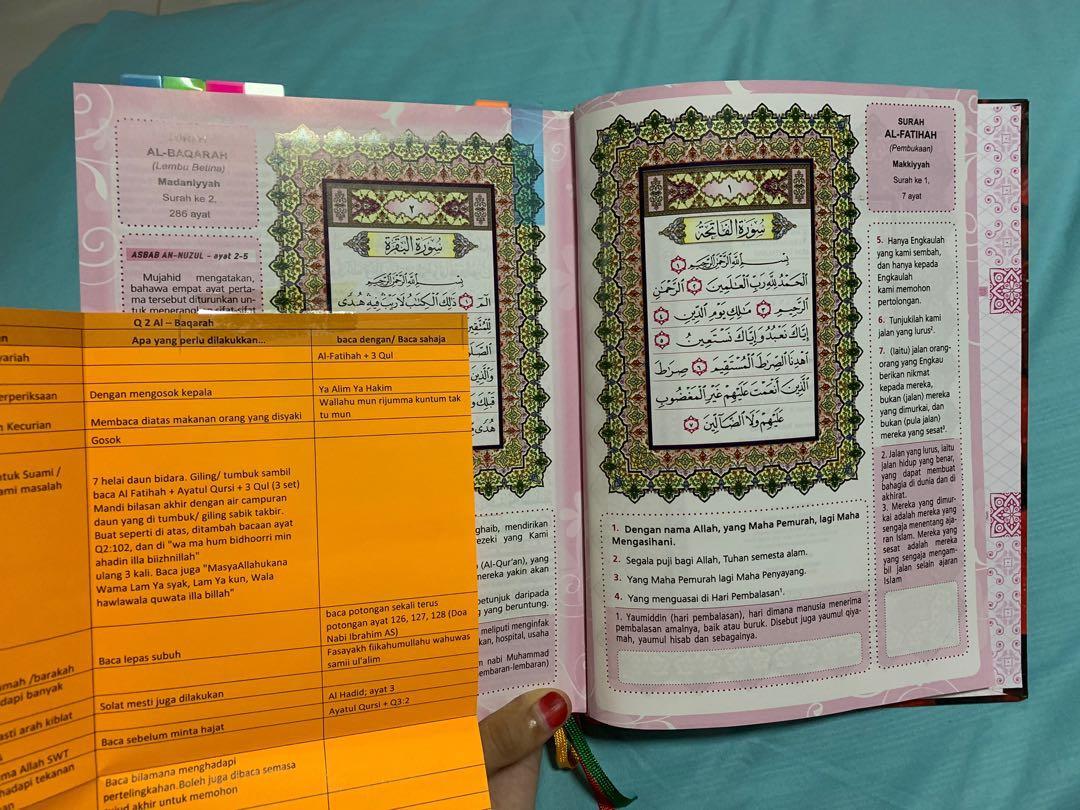 SURAH
AL-FATIHAH
(Pembukaan)
Makkiyyah
Surah ke 1,
7 ayat
١
سُورَةُ الفَاتِحَةِ
بِسْمِ اللَّهِ الرَّحْمَٰنِ الرَّحِيمِ ١
الْحَمْدُ لِلَّهِ رَبِّ الْعَالَمِينَ ٢ الرَّحْمَٰنِ
الرَّحِيمِ ٣ مَالِكِ يَوْمِ الدِّينِ ٤
إِيَّاكَ نَعْبُدُ وَإِيَّاكَ نَسْتَعِينُ ٥
اهْدِنَا الصِّرَاطَ الْمُسْتَقِيمَ ٦ صِرَاطَ
الَّذِينَ أَنْعَمْتَ عَلَيْهِمْ غَيْرِ الْمَغْضُوبِ
عَلَيْهِمْ وَلَا الضَّالِّينَ ٧
1. Dengan nama Allah, yang Maha Pemurah, lagi Maha
Mengasihani.
2. Segala puji bagi Allah, Tuhan semesta alam.
3. Yang Maha Pemurah lagi Maha Penyayang.
4. Yang menguasai di Hari Pembalasan¹.
5. Hanya Engkaulah
yang kami sembah,
dan hanya kepada
Engkaulah
kami memohon
pertolongan.
6. Tunjukilah kami
jalan yang lurus².
7. (Iaitu) jalan orang-
orang yang Engkau
berikan nikmat
kepada mereka,
bukan (jalan) mereka
yang dimurkai, dan
bukan (pula jalan)
mereka yang sesat³.
1. Yaumiddin (hari), hari dimana manusia menerima
pembalasan amalnya, baik atau buruk. Disebut juga yaumul qiya-
mah, yaumul hisab dan sebagainya.
2. Jalan yang lurus, iaitu
jalan hidup yang benar,
yang dapat membuat
bahagia di dunia dan di
akhirat.
3. Mereka yang dimur-
kai adalah mereka yang
sengaja menentang aja-
ran Islam. Mereka yang
sesat adalah mereka
yang sengaja mengam-
bil jalan selain ajaran
Islam
SURAH
AL-BAQARAH
(Lembu Betina)
Madaniyyah
Surah ke 2,
286 ayat
ASBAB AN-NUZUL - ayat 2-5
Mujahid mengatakan,
bahawa empat ayat perta-
ma tersebut diturunkan un-
tuk menerangkan sifat-sifat
٢
سُورَةُ البَقَرَةِ
بِسْمِ اللَّهِ الرَّحْمَٰنِ الرَّحِيمِ
الم ١ ذَٰلِكَ الْكِتَابُ لَا رَيْبَ فِيهِ هُدًى
لِلْمُتَّقِينَ
وَالَّذِينَ
قَبْلِكَ
هُدًى
ghaib, mendirikan
ezeki yang Kami
(Al-Qur'an), yang
mereka yakin akan
petunjuk daripada
yang beruntung.
meliputi menginfak
kan, hospital, usaha
nabi Muhammad
embaran-lembaran)
Q 2 Al – Baqarah
Apa yang perlu dilakukkan... baca dengan/ Baca sahaja
yariah Al-Fatihah + 3 Qul
erperiksaan Dengan mengosok kepala Ya Alim Ya Hakim
n Kecurian Membaca diatas makanan orang yang disyaki Wallahu mun rijumma kuntum tak
tu mun
Gosok
ntuk Suami /
ami masalah
7 helai daun bidara. Giling/ tumbuk sambil
baca Al Fatihah + Ayatul Qursi + 3 Qul (3 set)
Mandi bilasan akhir dengan air campuran
daun yang di tumbuk/ giling sabik takbir.
Buat seperti di atas, ditambah bacaan ayat
Q2:102, dan di "wa ma hum bidhoorri min
ahadin illa biizhnillah"
ulang 3 kali. Baca juga "MasyaAllahukana
Wama Lam Ya syak, Lam Ya kun, Wala
hawlawala quwata illa billah"
baca potongan sekali terus
potongan ayat 126, 127, 128 (Doa
Nabi Ibrahim AS)
Baca lepas subuh Fasayakh fiikahumullahu wahuwas
samii ul'alim
umah /barakah
dapi banyak
Solat mesti juga dilakukan Al Hadid; ayat 3
asti arah kiblat Ayatul Qursi + Q3:2
Baca sebelum minta hajat
ma Allah SWT
hadapi tekanan
Baca bilamana menghadapi
pertelingkahan.Boleh juga dibaca semasa
akhir untuk memohon